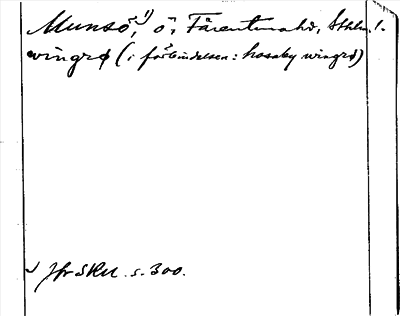 Munsö,¹⁾ ö, Färentuna hd, Sthlm l.
wingrø (i förbindelsen: husaby wingrø)
¹⁾ Jfr SRU s. 300.